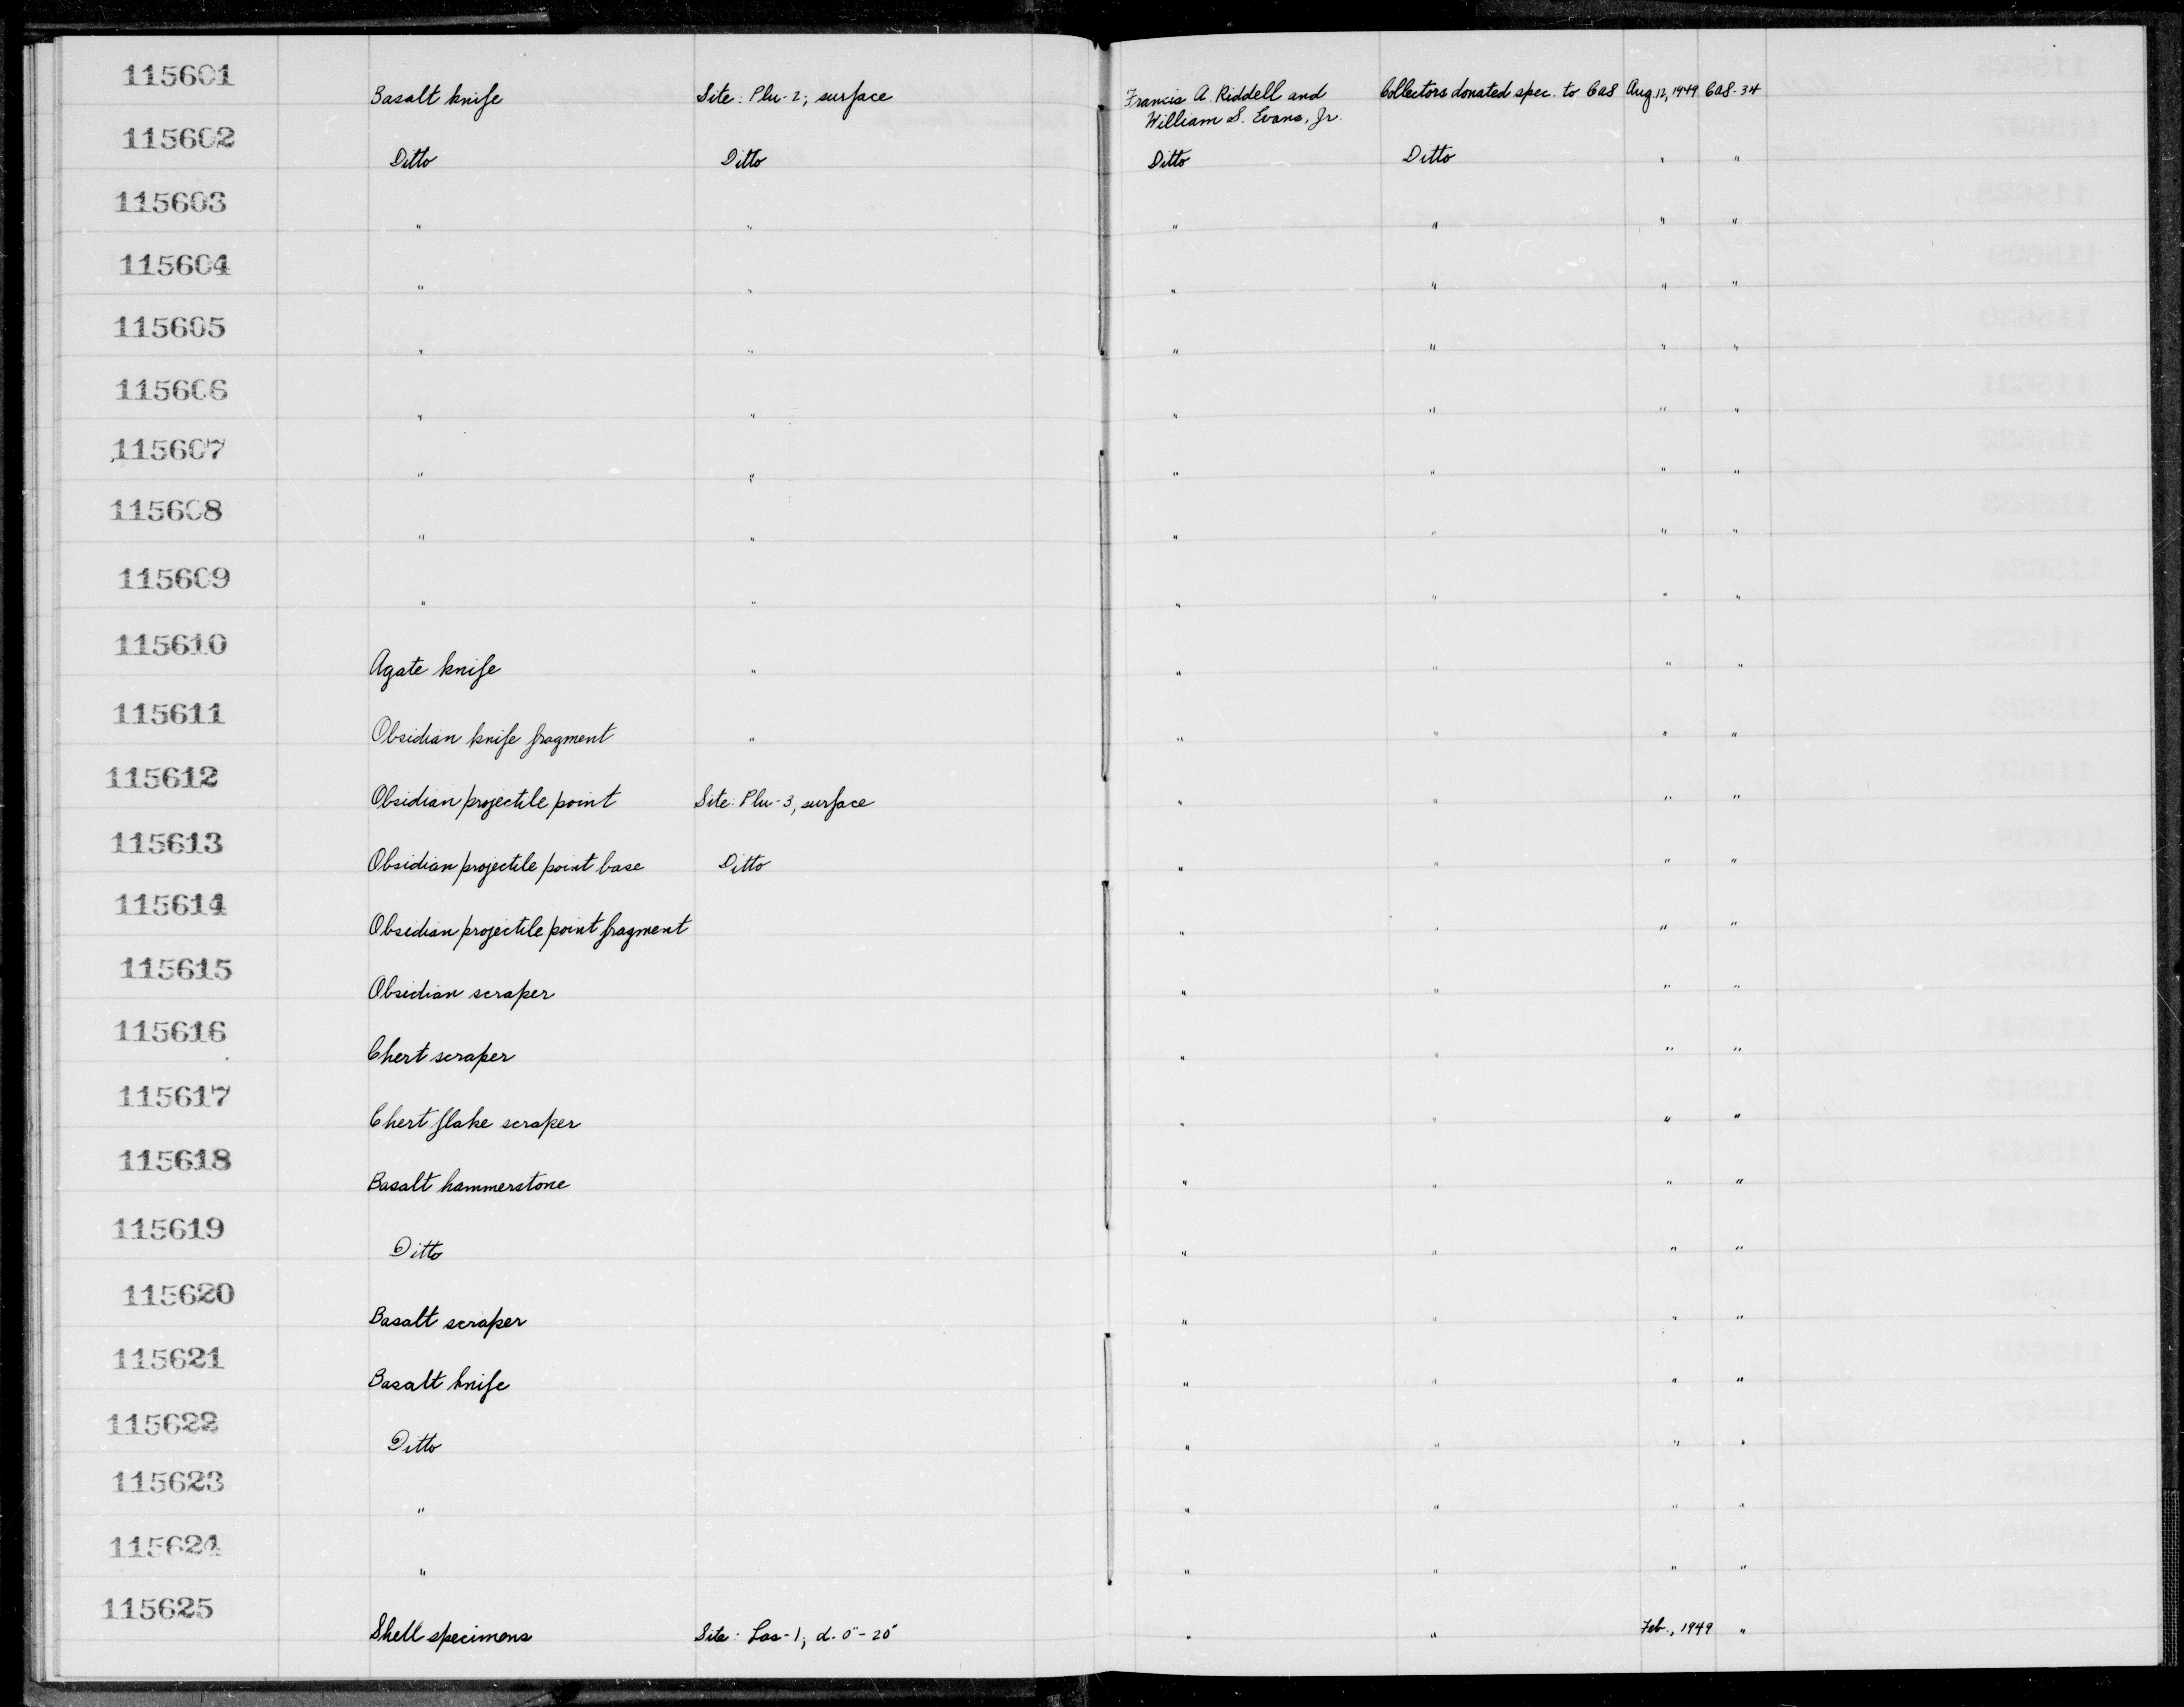 115601 Basalt knife Site: Plu-2; surface Francis A. Riddell and Collectors donated spec. to CAS Aug. 12, 1949 CAS-34
William S. Evans, Jr.
115602 Ditto Ditto Ditto Ditto " "
115603 " " " " " "
115604 " " " " " "
115605 " " " " " "
115606 " " " " " "
115607 " " " " " "
115608 " " " " " "
115609 " " " " " "
115610 Agate knife " " " " "
115611 Obsidian knife fragment " " " " "
115612 Obsidian projectile point Site: Plu-3, surface " " " "
115613 Obsidian projectile point base Ditto " " " "
115614 Obsidian projectile point fragment " " " "
115615 Obsidian scraper " " " "
115616 Chert scraper " " " "
115617 Chert flake scraper " " " "
115618 Basalt hammerstone " " " "
115619 Ditto " " " "
115620 Basalt scraper " " " "
115621 Basalt knife " " " "
115622 Ditto " " " "
115623 " " " " "
115624 " " " " "
115625 Shell specimens Site: Las-1; d. 0"-20" " " Feb., 1949 "